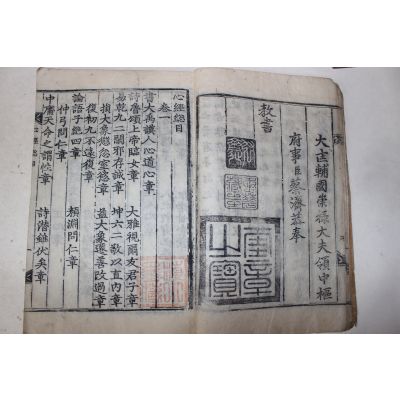 大匡輔國崇祿大夫領中樞
府事臣蔡濟恭奉
教書
奎章之寶
心經總目
卷一
書大禹謨人心道心章
詩魯頌上帝臨女章 大雅視爾友君子章
易乾九二閑邪存誠章 坤六二敬以直內章
損大象懲忿窒慾章 益大象遷善改過章
復初九不遠復章
論語子絕四章 顏淵問仁章
仲弓問仁章
中庸天命之謂性章 詩潛雖伏矣章
心經總目